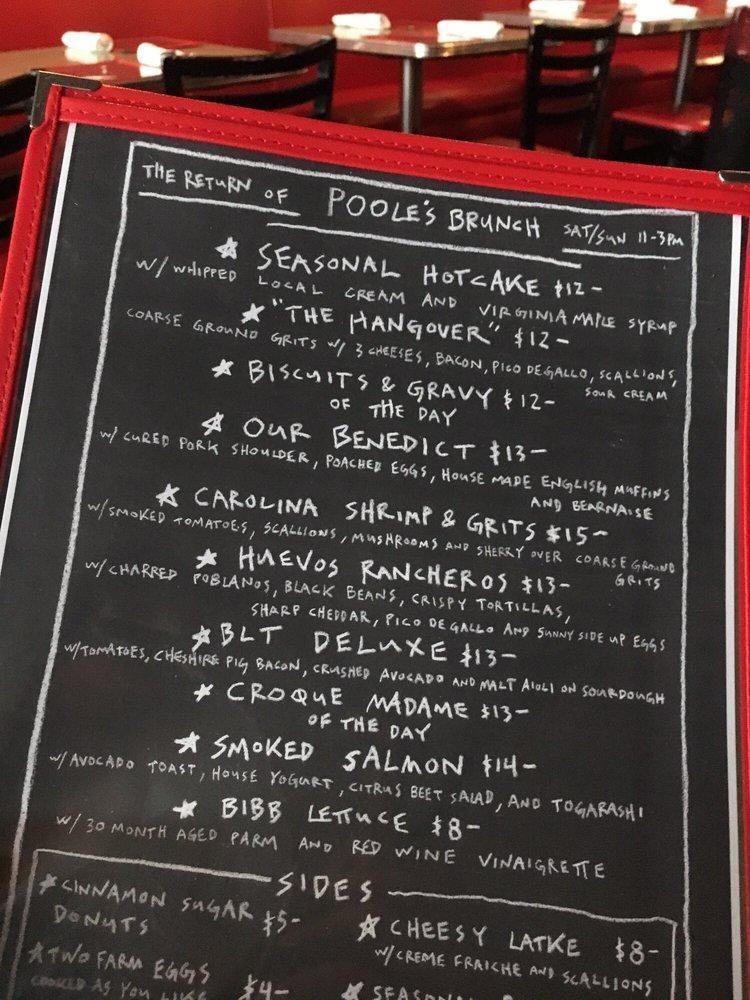 THE RETURN OF POOLE'S BRUNCH SAT/SUN 11-3PM
SEASONAL HOTCAKE $12-
W/ WHIPPED LOCAL CREAM AND VIRGINIA MAPLE SYRUP
"THE HANGOVER" $12-
COARSE GROUND GRITS W/ 3 CHEESES, BACON, PICO DE GALLO, SCALLIONS,
SOUR CREAM
BISCUITS & GRAVY $12-
OF THE DAY
OUR BENEDICT $13-
W/ CURED PORK SHOULDER, POACHED EGGS, HOUSE MADE ENGLISH MUFFINS
AND BEARNAISE
CAROLINA SHRIMP & GRITS $15-
W/SMOKED TOMATOES, SCALLIONS, MUSHROOMS AND SHERRY OVER COARSE GROUND
GRITS
HUEVOS RANCHEROS $13-
W/ CHARRED POBLANOS, BLACK BEANS, CRISPY TORTILLAS,
SHARP CHEDDAR, PICO DE GALLO AND SUNNY SIDE UP EGGS
BLT DELUXE $13-
W/TOMATOES, CHESHIRE PIG BACON, CRUSHED AVOCADO AND MALT AIOLI ON SOURDOUGH
CROQUE MADAME $13-
OF THE DAY
SMOKED SALMON $14-
W/ AVOCADO TOAST, HOUSE YOGURT, CITRUS BEET SALAD, AND TOGARASHI
BIBB LETTUCE $8-
W/ 30 MONTH AGED PARM AND RED WINE VINAIGRETTE
SIDES
CINNAMON SUGAR
DONUTS $5-
TWO FARM EGGS
COOKED AS YOU LIKE $4-
CHEESY LATKE $8-
W/ CREME FRAICHE AND SCALLIONS